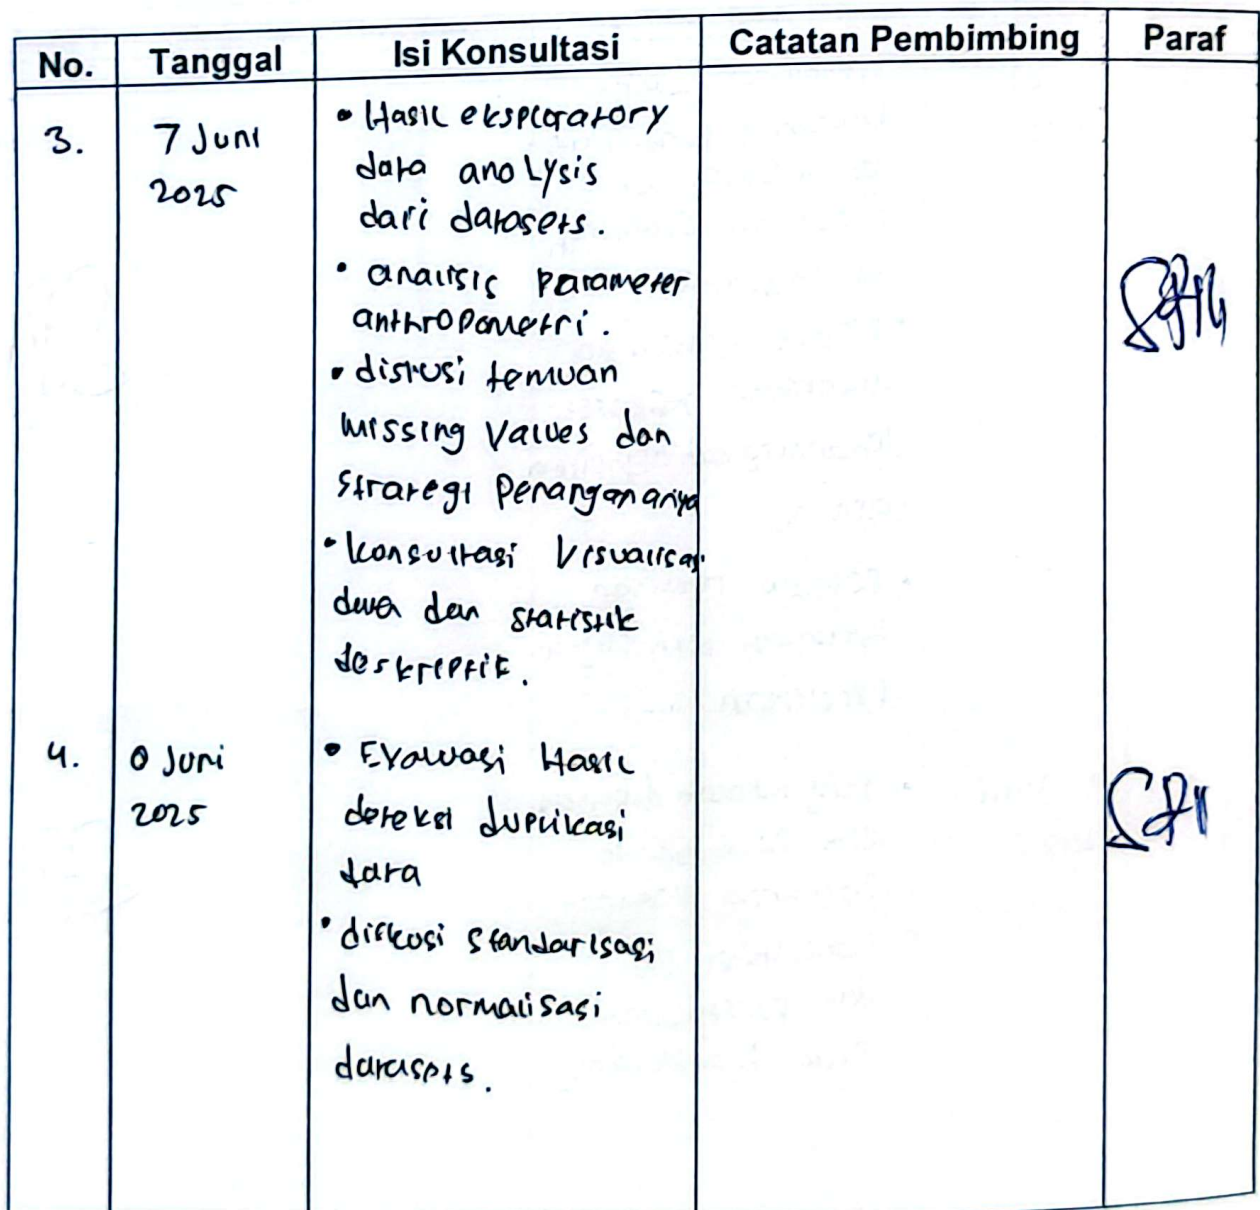 No. Tanggal Isi Konsultasi Catatan Pembimbing Paraf
3. 7 Juni
2025
• Hasil eksploratory
data analysis
dari datasets.
• analisis parameter
anthropometri.
• diskusi temuan
missing values dan
strategi penanganannya
• konsultasi visualisasi
data dan statistik
deskriptif.
4. 0 Juni
2025
• Evaluasi Hasil
deteksi duplikasi
data
• diskusi standarisasi
dan normalisasi
datasets.